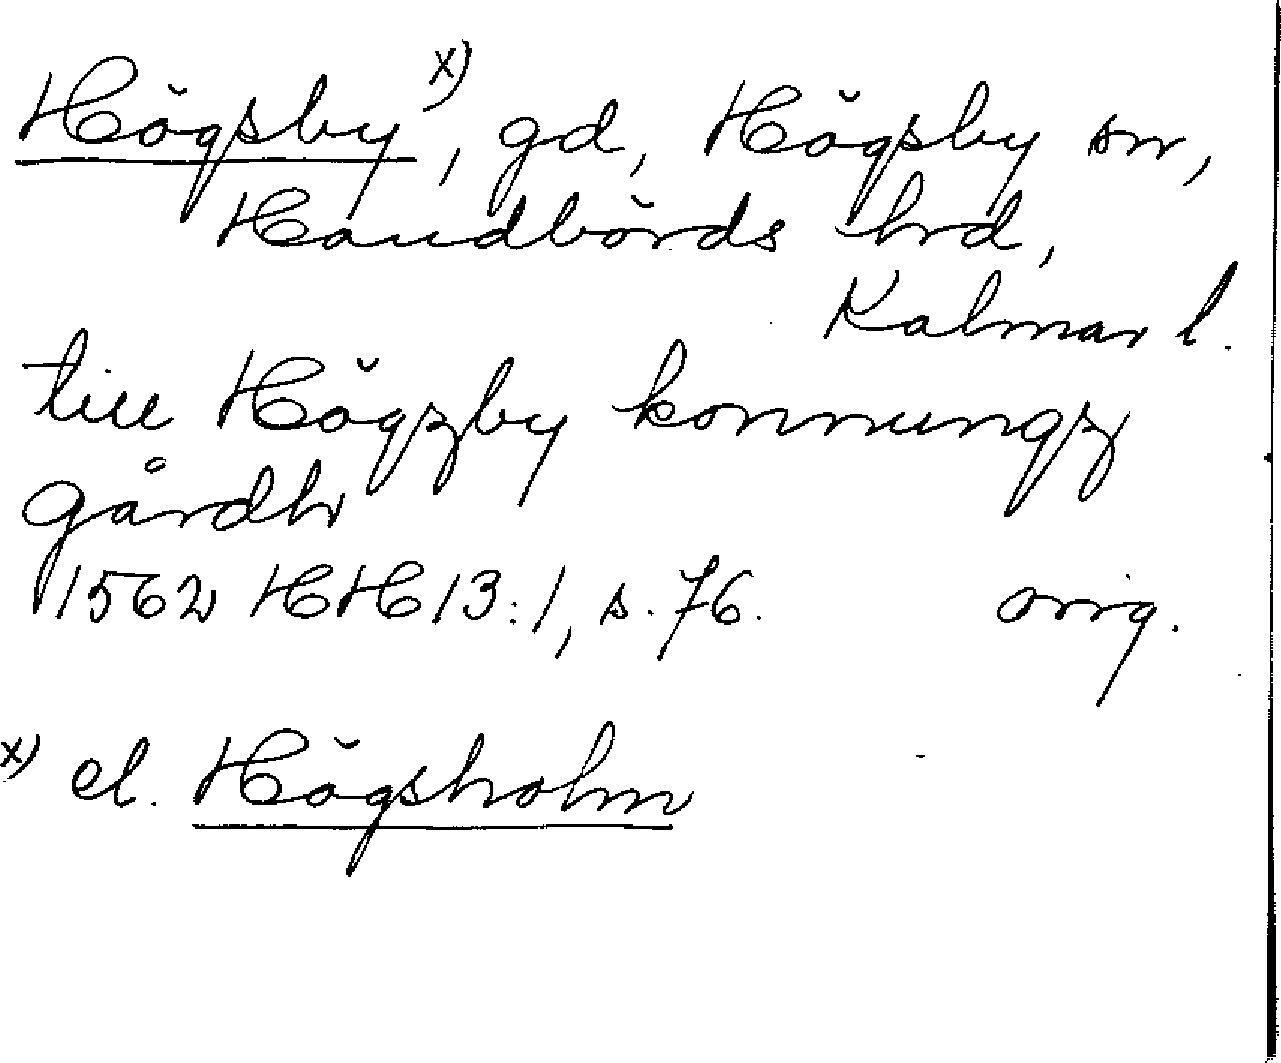 Högsby x), gd, Högsby sn,
Handbörds hrd,
Kalmar l.
till Högzby konnungz
gårdh
1562 HH 13:1, s. 76. orig.
x) el. Högsholm